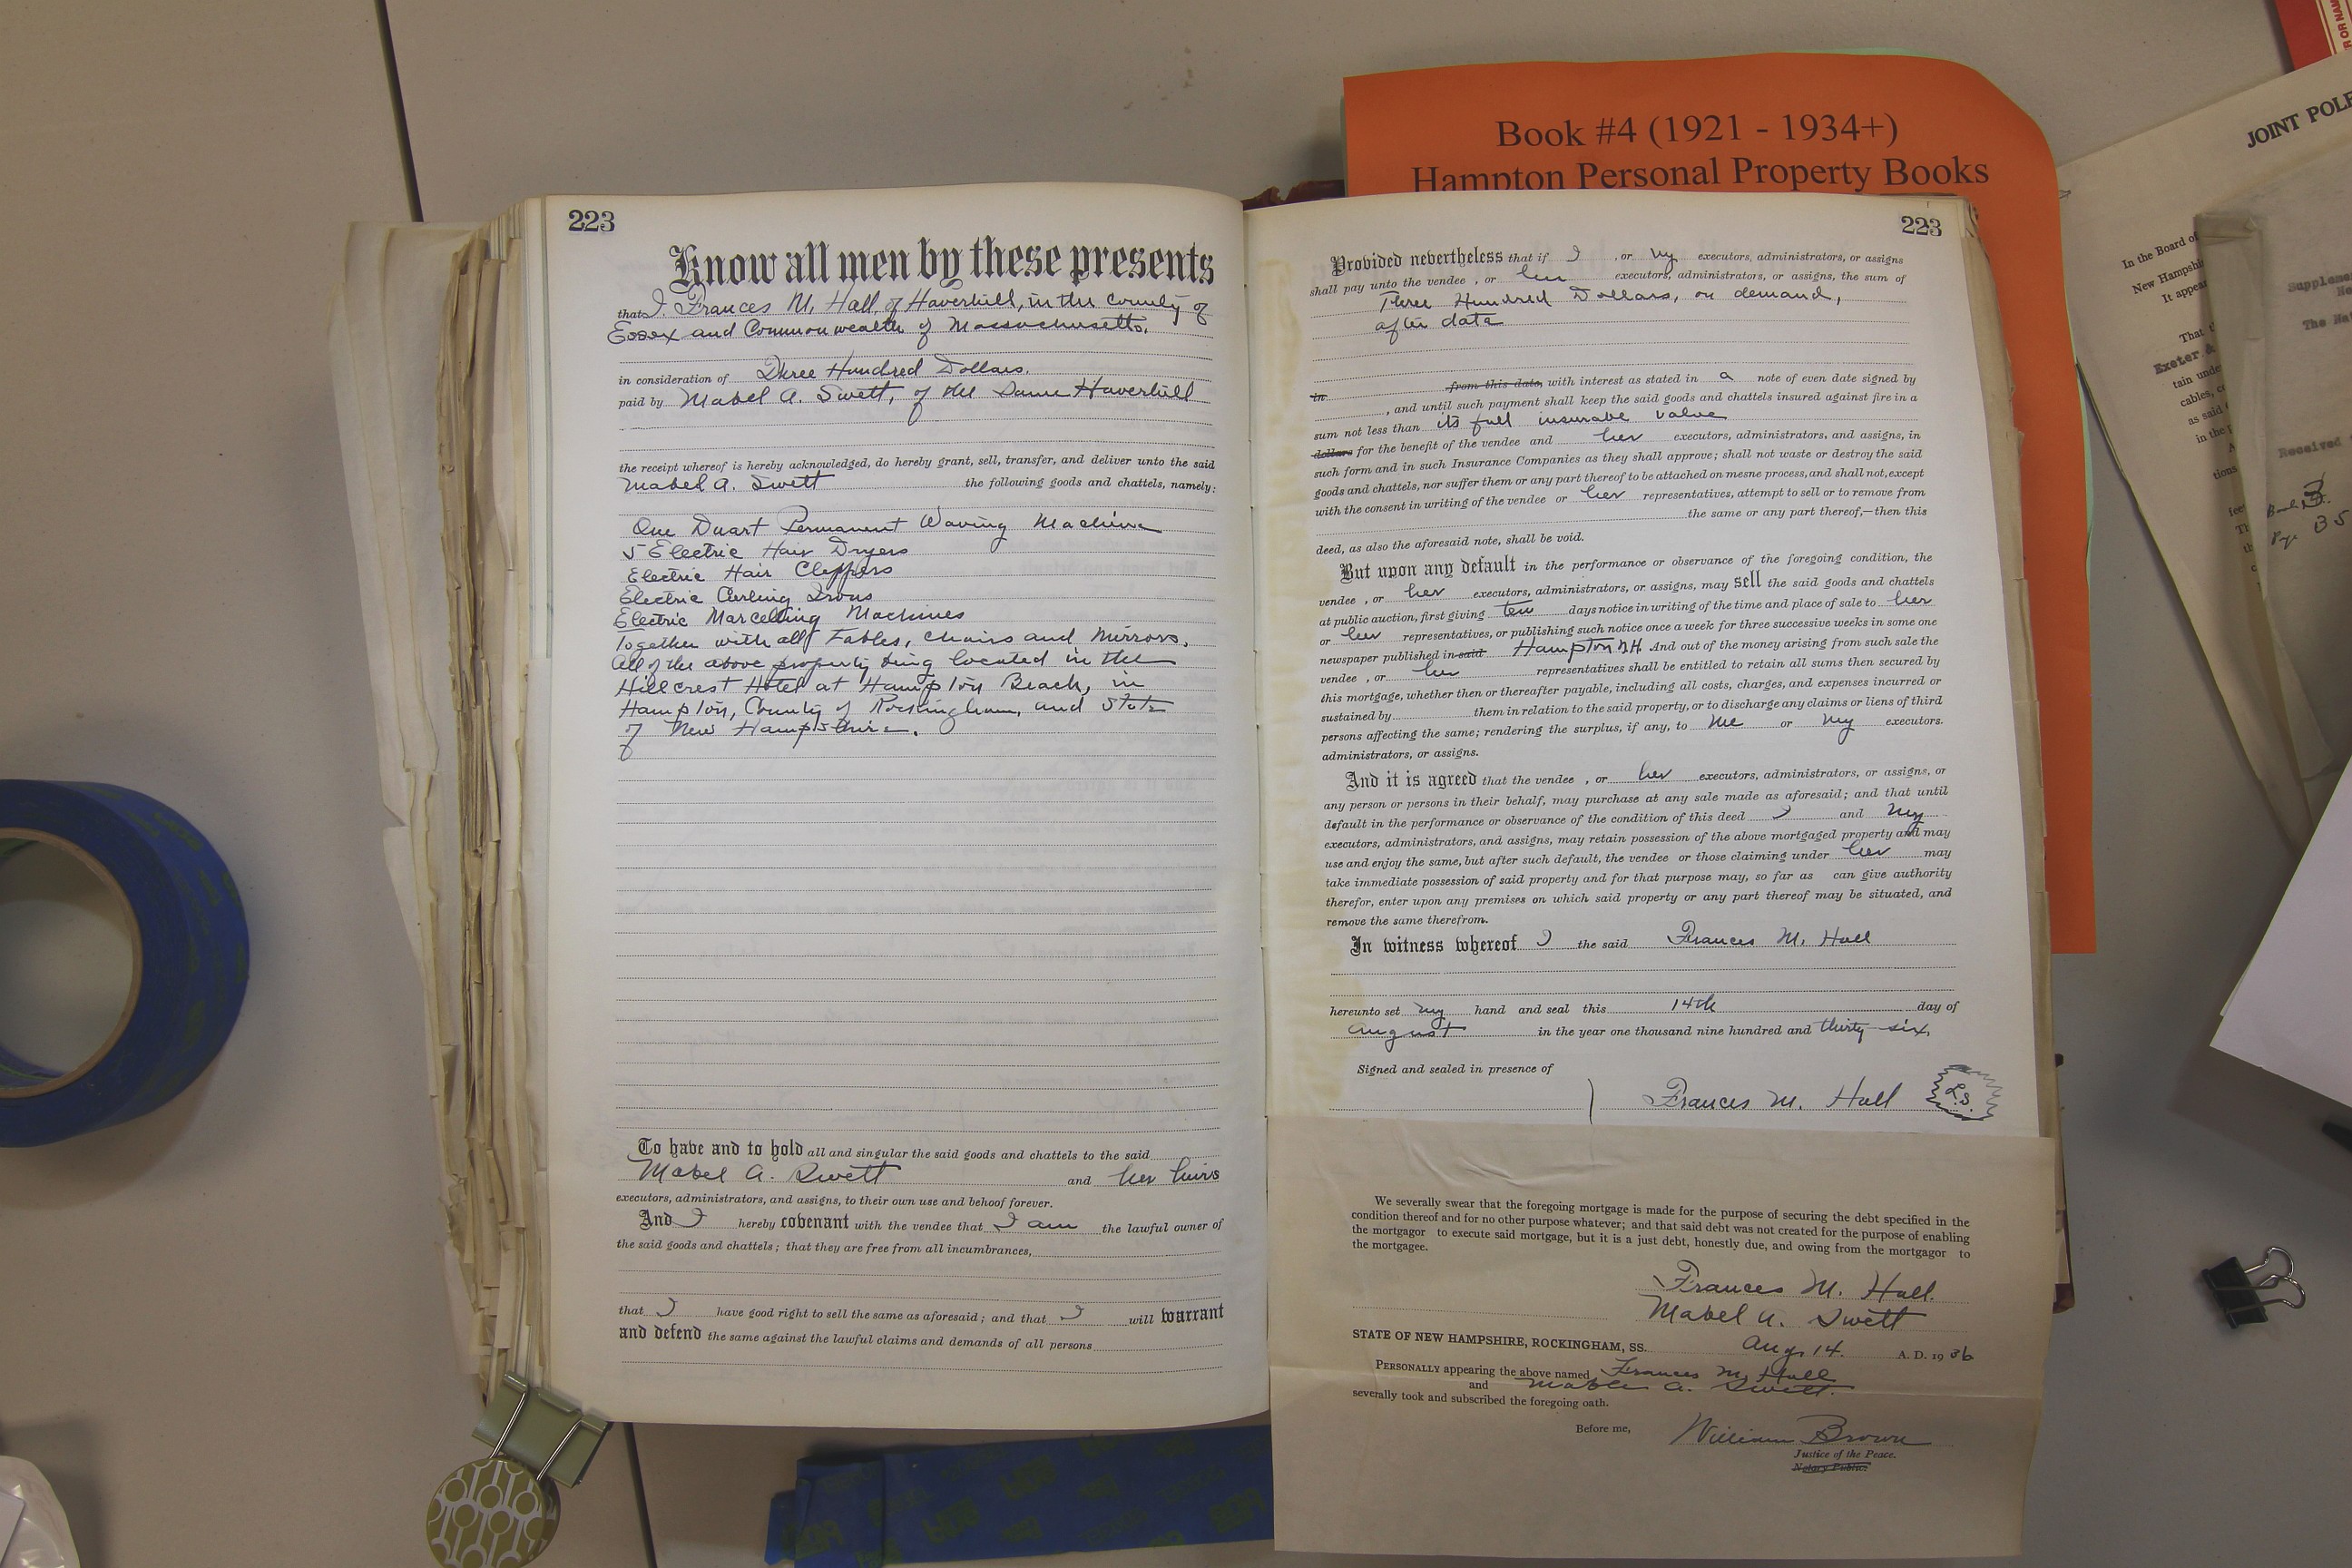 Book #4 (1921 - 1934+)
Hampton Personal Property Books
223
Know all men by these presents
that I Frances M. Hall, of Haverhill, in the county of
Essex and Commonwealth of Massachusetts,
in consideration of Three Hundred Dollars,
paid by Mabel A. Swett, of the same Haverhill
the receipt whereof is hereby acknowledged, do hereby grant, sell, transfer, and deliver unto the said
Mabel A. Swett the following goods and chattels, namely:
One Duart Permanent Waving Machine
5 Electric Hair Dryers
Electric Hair Clippers
Electric Curling Irons
Electric Marcelling Machines
Together with all Tables, chairs and mirrors.
All of the above property being located in the
Hillcrest Hotel at Hampton Beach, in
Hampton, County of Rockingham, and State
of New Hampshire.
To have and to hold all and singular the said goods and chattels to the said
Mabel A. Swett and her heirs
executors, administrators, and assigns, to their own use and behoof forever.
And I hereby covenant with the vendee that I am the lawful owner of
the said goods and chattels; that they are free from all incumbrances,
that I have good right to sell the same as aforesaid; and that I will warrant
and defend the same against the lawful claims and demands of all persons
223
Provided nevertheless that if I , or my executors, administrators, or assigns
shall pay unto the vendee , or her executors, administrators, or assigns, the sum of
Three Hundred Dollars, on demand,
after date
from this date, with interest as stated in a note of even date signed by
in , and until such payment shall keep the said goods and chattels insured against fire in a
sum not less than its full insurable value
dollars for the benefit of the vendee and her executors, administrators, and assigns, in
such form and in such Insurance Companies as they shall approve; shall not waste or destroy the said
goods and chattels, nor suffer them or any part thereof to be attached on mesne process, and shall not, except
with the consent in writing of the vendee or her representatives, attempt to sell or to remove from
the same or any part thereof,—then this
deed, as also the aforesaid note, shall be void.
But upon any default in the performance or observance of the foregoing condition, the
vendee , or her executors, administrators, or assigns, may sell the said goods and chattels
at public auction, first giving ten days notice in writing of the time and place of sale to her
or her representatives, or publishing such notice once a week for three successive weeks in some one
newspaper published in said Hampton NH And out of the money arising from such sale the
vendee , or her representatives shall be entitled to retain all sums then secured by
this mortgage, whether then or thereafter payable, including all costs, charges, and expenses incurred or
sustained by them in relation to the said property, or to discharge any claims or liens of third
persons affecting the same; rendering the surplus, if any, to me or my executors.
administrators, or assigns.
And it is agreed that the vendee , or her executors, administrators, or assigns, or
any person or persons in their behalf, may purchase at any sale made as aforesaid; and that until
default in the performance or observance of the condition of this deed I and my
executors, administrators, and assigns, may retain possession of the above mortgaged property and may
use and enjoy the same, but after such default, the vendee or those claiming under her may
take immediate possession of said property and for that purpose may, so far as can give authority
therefor, enter upon any premises on which said property or any part thereof may be situated, and
remove the same therefrom.
In witness whereof I the said Frances M. Hall
hereunto set my hand and seal this 14th day of
August in the year one thousand nine hundred and thirty-six.
Signed and sealed in presence of
Frances M. Hall L.S.
We severally swear that the foregoing mortgage is made for the purpose of securing the debt specified in the
condition thereof and for no other purpose whatever; and that said debt was not created for the purpose of enabling
the mortgagor to execute said mortgage, but it is a just debt, honestly due, and owing from the mortgagor to
the mortgagee.
Frances M. Hall.
Mabel A. Swett
STATE OF NEW HAMPSHIRE, ROCKINGHAM, SS. Aug. 14. A. D. 1936
PERSONALLY appearing the above named Frances M. Hall
and Mable A. Swett.
severally took and subscribed the foregoing oath.
Before me, William Brown
Justice of the Peace.
Notary Public.
JOINT POLE
In the Board of
New Hampshir
It appear
That
Exeter &
tain unde
cables, c
as said
in the p
tions
Supplemen
Ne
The Nat
Received
Book 3.
Page 35
OR NAM